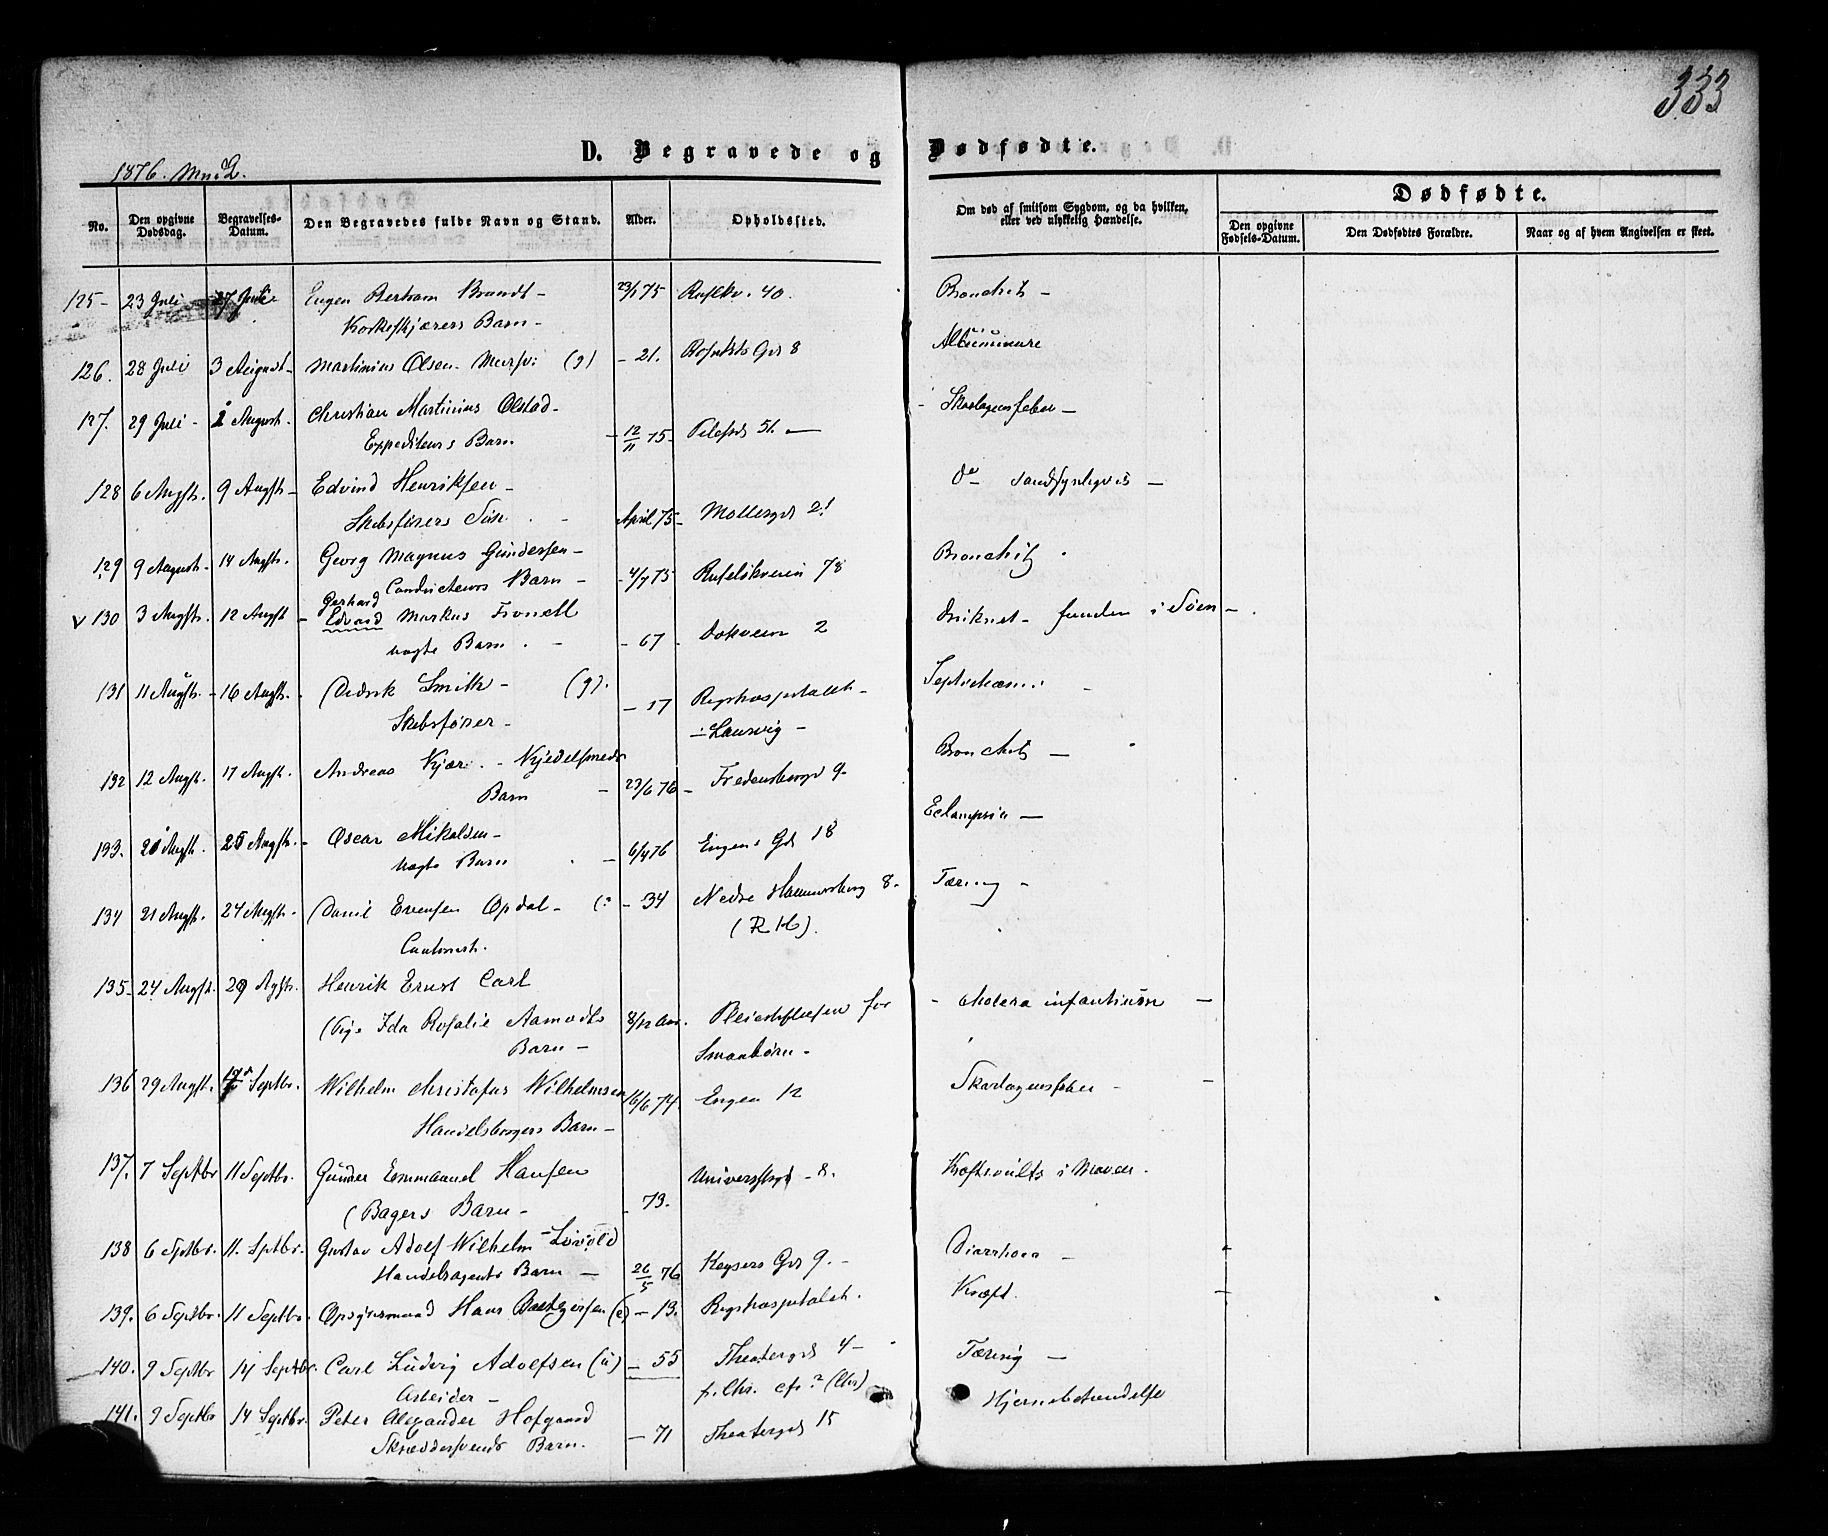 333
D. Begravede og Dødfødte.
1876.
No.
Den opgivne Dødsdag.
Begravelses-Datum.
Den Begravedes fulde Navn og Stand.
Alder.
Opholdssted.
Om død af smitsom Sygdom, og da hvilken, eller ved ulykkelig Hændelse.
Dødfødte.
Den opgivne Fødsels-Datum.
Den Dødfødtes Forældre.
Naar og af hvem Angivelsen er skeet.
125 - 23 Juli 27 Juli Eugen Bertram Brandt - 23/1 75 40. Bronchit -
Korkeskjærers Barn -
126. 28 Juli 3 August - Martinius Olsen. (g) - 21. Gd 8
127. 29 Juli - 2 August. Christian Martinius Olstad - - Skarlagensfeber -
Expediteurs Barn - 12/11 75 - 51. -
128 6 Augst. 9 Augst - Edvind Henriksen - do - sandsynligvis -
Skibsførers Søn. - April 75 - Møllergd 21
129 9 August - 14 Augst. Georg Magnus Gundersen - Bronchit
Conducteurs Barn - - 4/7 75 78
Gerhard
v 130 3 Augst. 12 Augst - Edvard Markus funden i Søen -
Barn. - - 67 - 2
131 11 Augst. - 16 Augst. Didrik Smith - (g).
Skibsfører - - 17 Rigshospitalet -
Laurvig -
132 12 Augst. 17 Augst. Andreas Kjær. - Kjedelsmeds Bronchit -
Barn - 23/6 76 - Fredensborgv 9 -
133. 20 Augst. 25 Augst. - Oscar Mikalsen - Eclampsia -
Barn - 6/4 76 Engens Gd 18
134 21 Augst. 24 Augst. Daniel Evensen Opdal - - 34 Nedre Hammersborg 8 - Tæring -
(R H).
135 - 24 Augst. 29 Augst. Henrik Ernst Carl - cholera infantium -
(Pige Ida Rosalie Aamodts 8/12 Aar. Pleiestiftelsen for
Barn - Smaabørn -
136 29 Augst. Septbr. Wilhelm Christofer Wilhelmsen 16/6 74. Engen 12 Skarlagensfeber - -
Handelsborgers Barn -
137. 7 Septbr 11 Septbr. Gunder Emmanuel Hansen Universitgd - 8. i Maven.
(Bagers Barn - - 73.
138 6 Sptbr. 11. Sptbr. Gustav Adolf Wilhelm - Diarrhoea -
Handelsagents Barn - 26/5 76 Keysers Gd 9. -
139. 6 Septbr. 11 Septbr. Opsynsmand Hans - 13. Rigshospitalet. Kræft.
140. 9 Septbr 14 Septbr. Carl Ludvig Adolfsen (u) - 55 Theatergd 4 - Tæring -
Arbeider -
141. 9 Septbr 14 Septbr. Peter Alexander Hofgaard Hjernebetændelse
Skræddersvends Barn. - 71 Theatergd 15